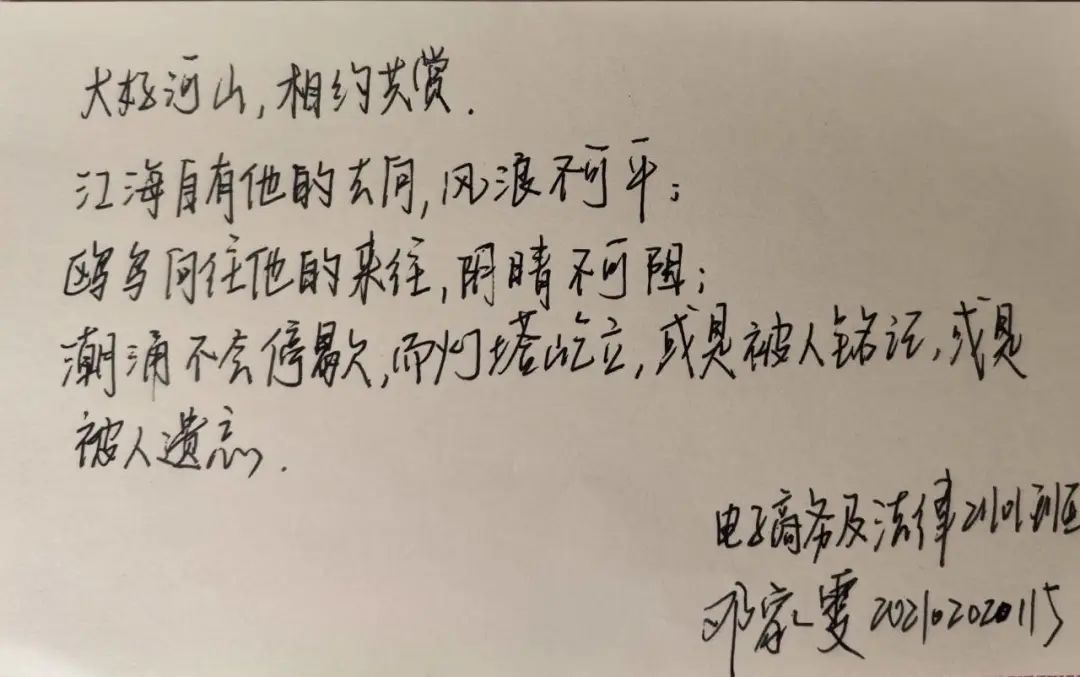 大好河山,相约共赏.
江海自有他的去向,风浪不可平;
鸥鸟向往他的来往,阴晴不可阻;
潮涌不会停歇,而灯塔屹立,或是被人铭记,或是
被人遗忘.
电子商务及法律2101班
邓家雯 202102020115